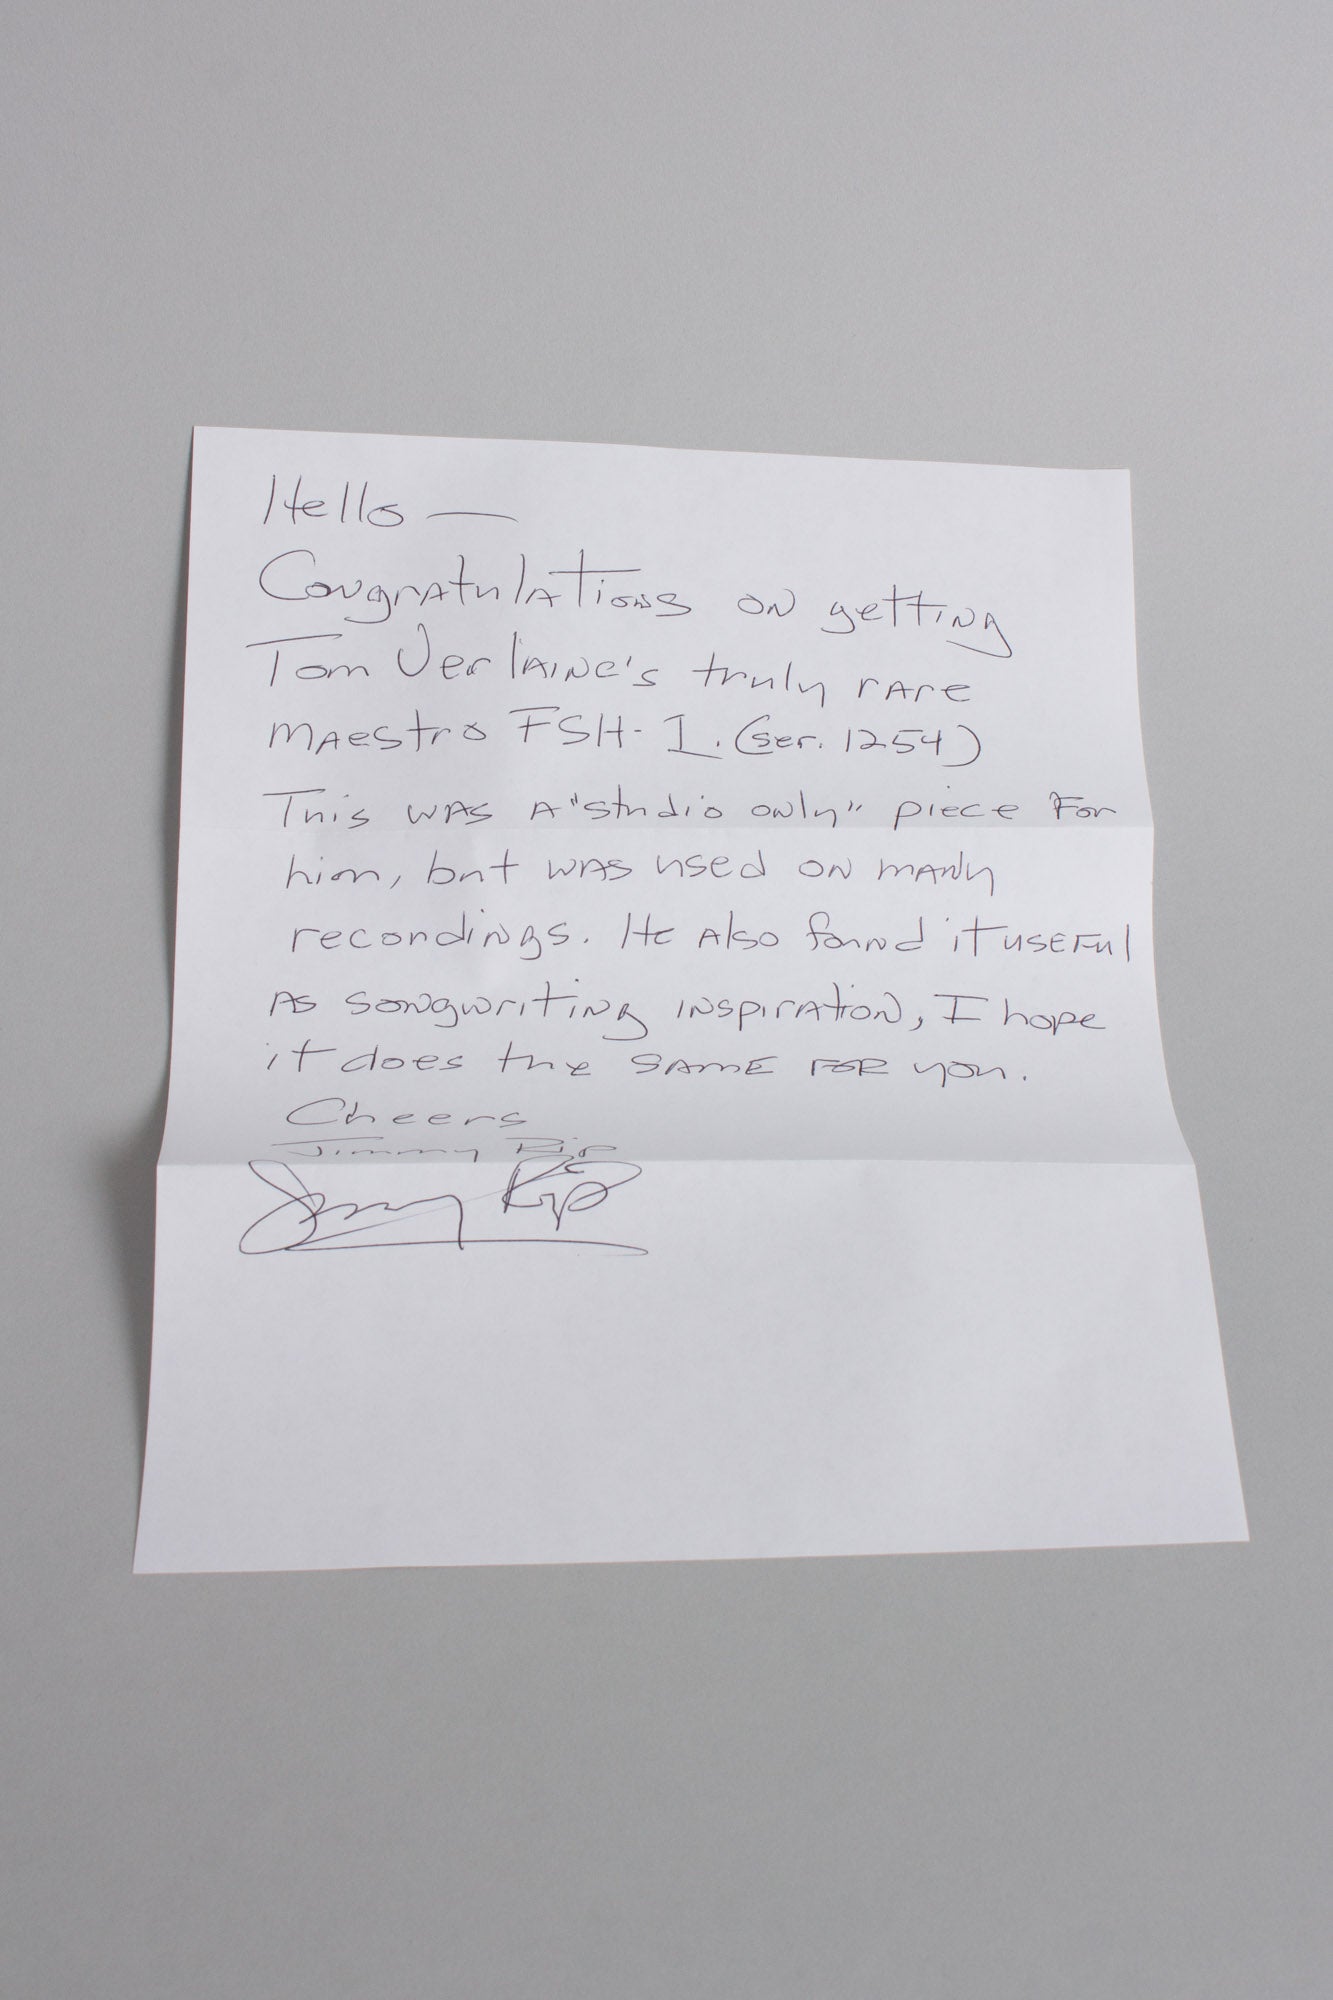 Hello —
Congratulations on getting
Tom Verlaine's truly rare
maestro FSH-1. (ser. 1254)
This was a "studio only" piece for
him, but was used on many
recordings. He also found it useful
as songwriting inspiration, I hope
it does the same for you.
Cheers
Jimmy Rip
Jimmy Rip